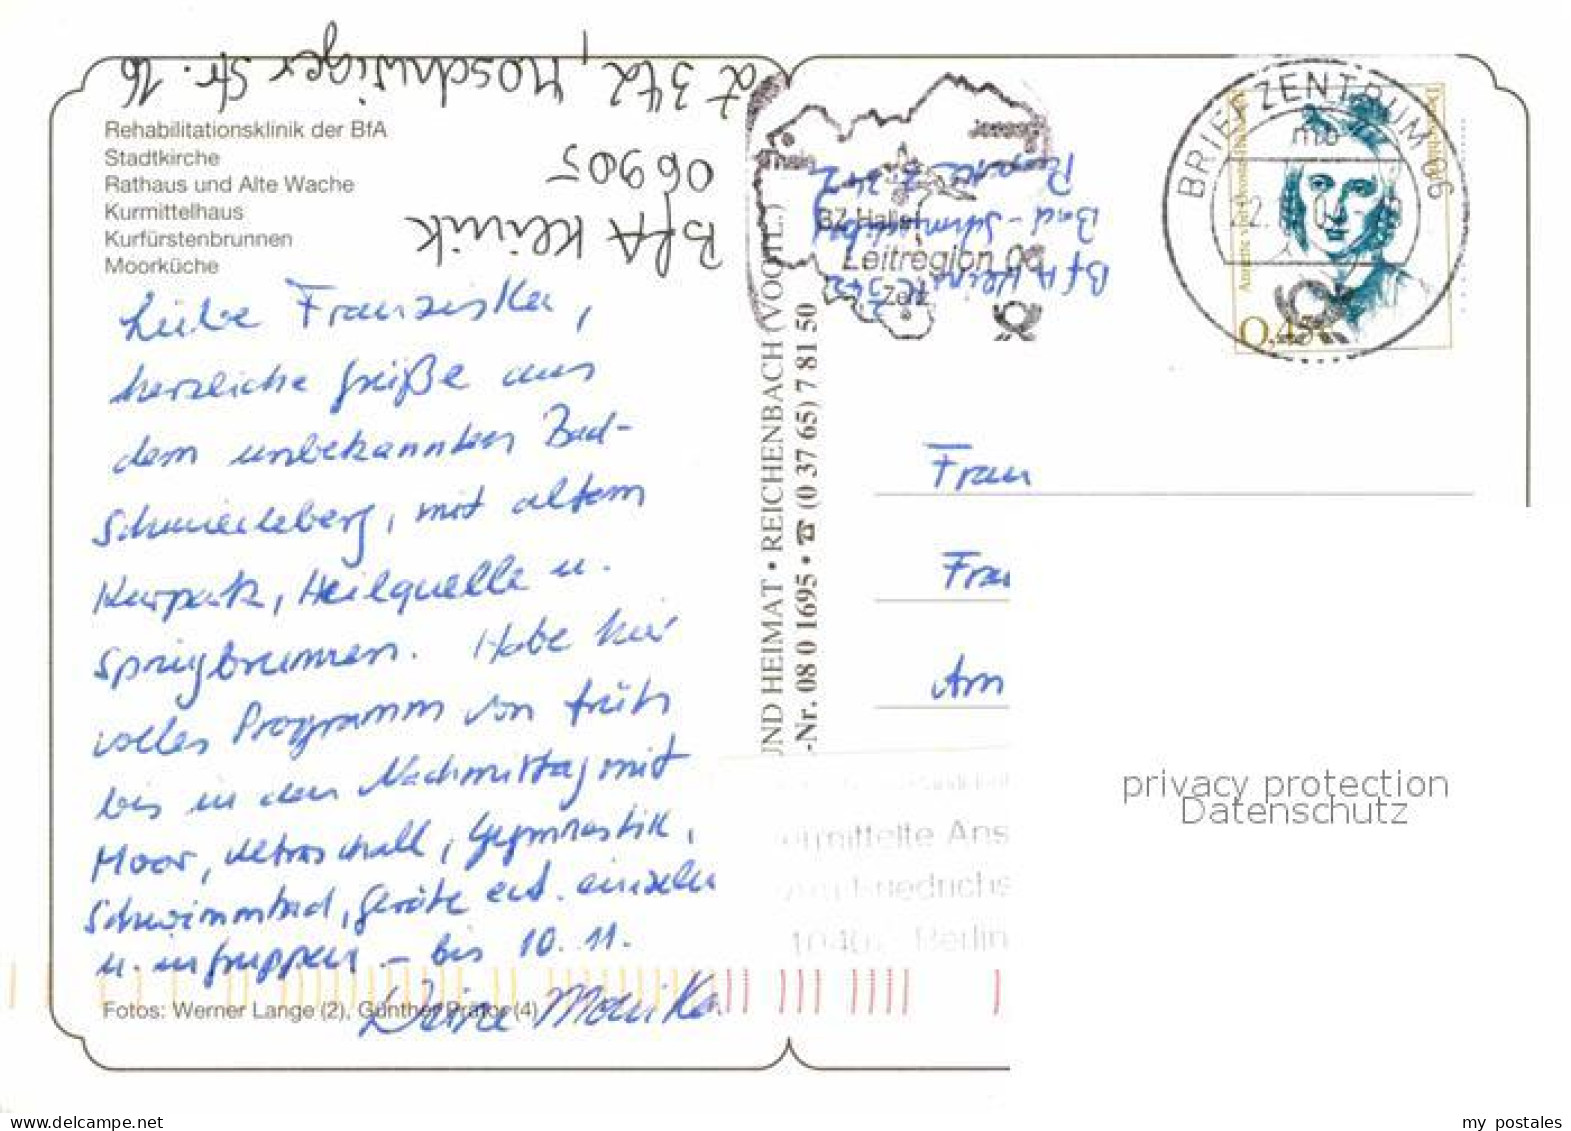 Rehabilitationsklinik der BfA
Stadtkirche
Rathaus und Alte Wache
Kurmittelhaus
Kurfürstenbrunnen
Moorküche
BfA Klinik
06905
Z 342, Moschwiger Str. 16
Liebe Franziska,
herzliche Grüße aus
dem unbekannten Bad-
Schmiedeberg, mit altem
Kurpark, Heilquelle u.
Springbrunnen. Habe hier
volles Programm von früh
bis in den Nachmittag mit
Moor, Ultraschall, Gymnastik,
Schwimmbad, Geräte etc. einzeln
u. in Gruppen – bis 10. 11.
Deine Monika
Fotos: Werner Lange (2), Günther Prätor (4)
UND HEIMAT • REICHENBACH (VOGTL.)
-Nr. 08 0 1695 • ☎ (0 37 65) 7 81 50
BfA Klinik
Z 342
Bad-Schmiedeberg
Thale
Jessen
BZ Halle
Leitregion 06
Zeitz
BRIEFZENTRUM 06
mb
Deutschland
Annette von Droste-Hülshoff
0,45
Frau
Fran
Am
ermittelte Ans
Berlin
privacy protection
Datenschutz
www.delcampe.net
my_postales